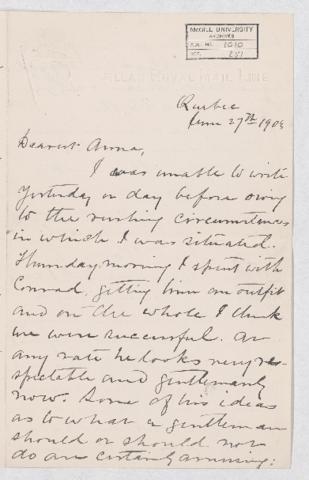 McGILL UNIVERSITY
ARCHIVES
ACC. NO. 1010
REF. 251
ALLAN ROYAL MAIL LINE
Quebec
June 27th 190
Dearest Anna,
I was unable to write
yesterday or day before owing
to the rushing circumstances
in which I was situated.
Thursday morning I spent with
Conrad getting him an outfit
and on the whole I think
we were successful. At
any rate he looks very re-
spectable and gentlemanly
now. Some of his ideas
as to what a gentleman
should or should not
do are certainly amusing: